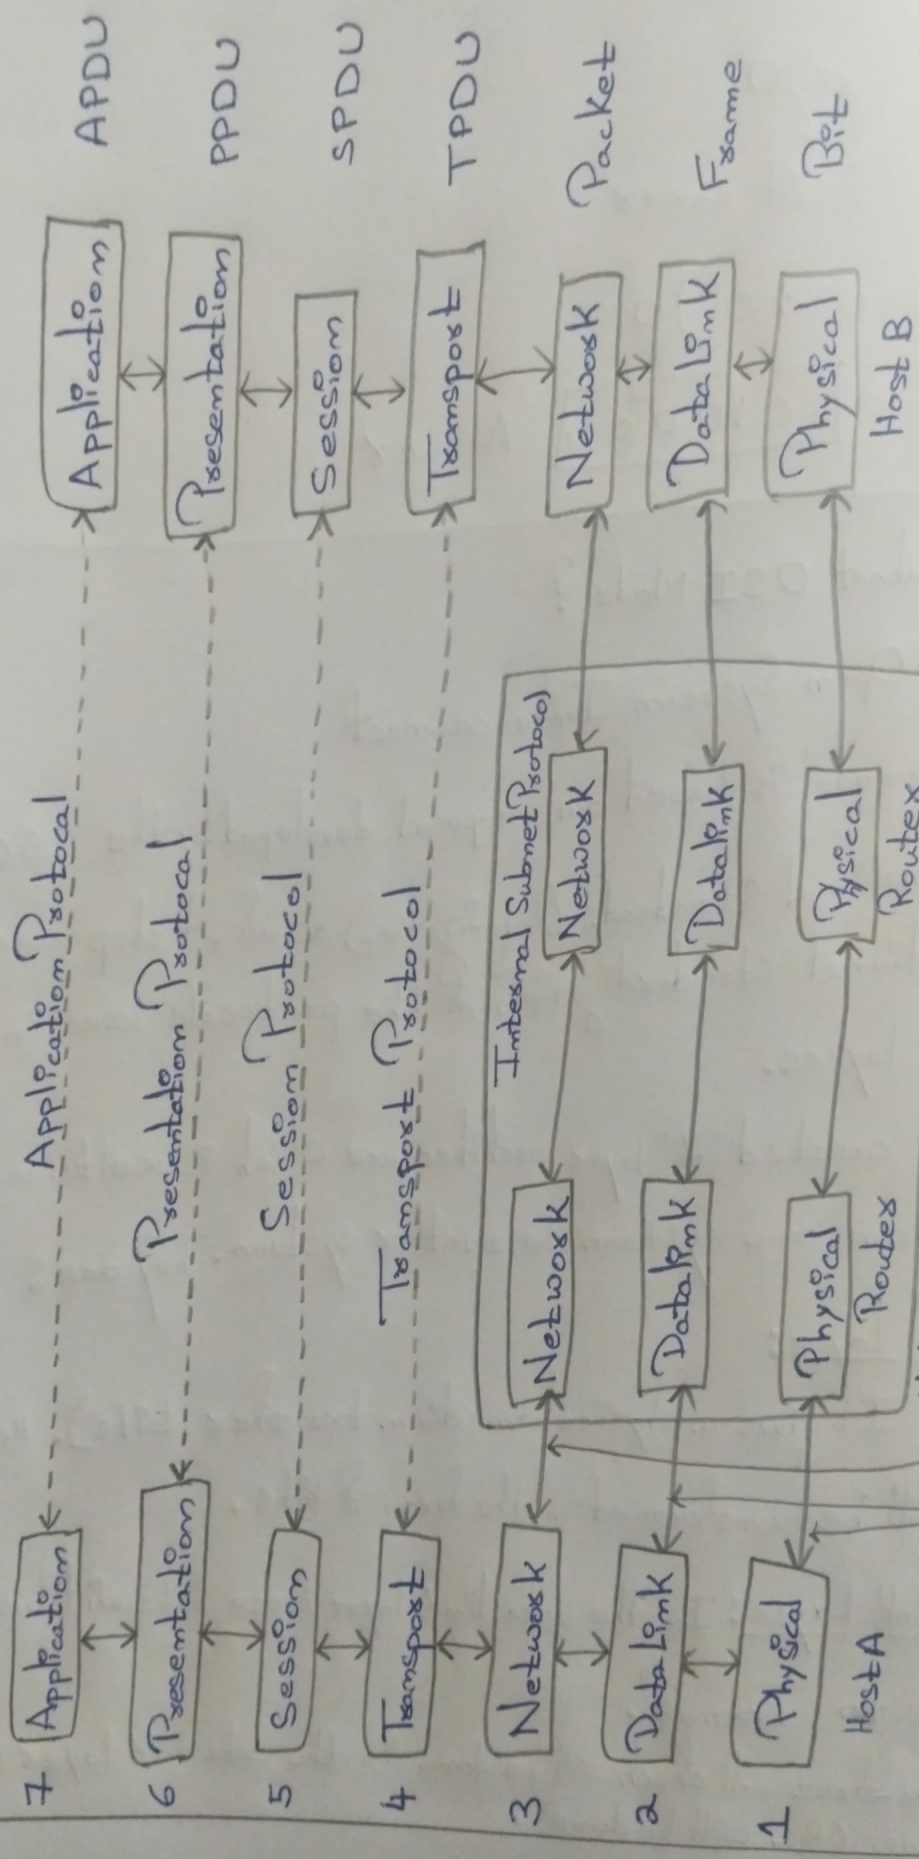 Application Protocal
7 Application Application APDU
Presentation Protocal
6 Presentation Presentation PPDU
Session Protocol
5 Session Session SPDU
Transport Protocol
4 Transport Transport TPDU
Internal Subnet Protocol
3 Network Network Network Network Packet
2 Data Link Datalink Datalink Data Link Frame
1 Physical Physical Physical Physical Bit
Host A Router Router Host B